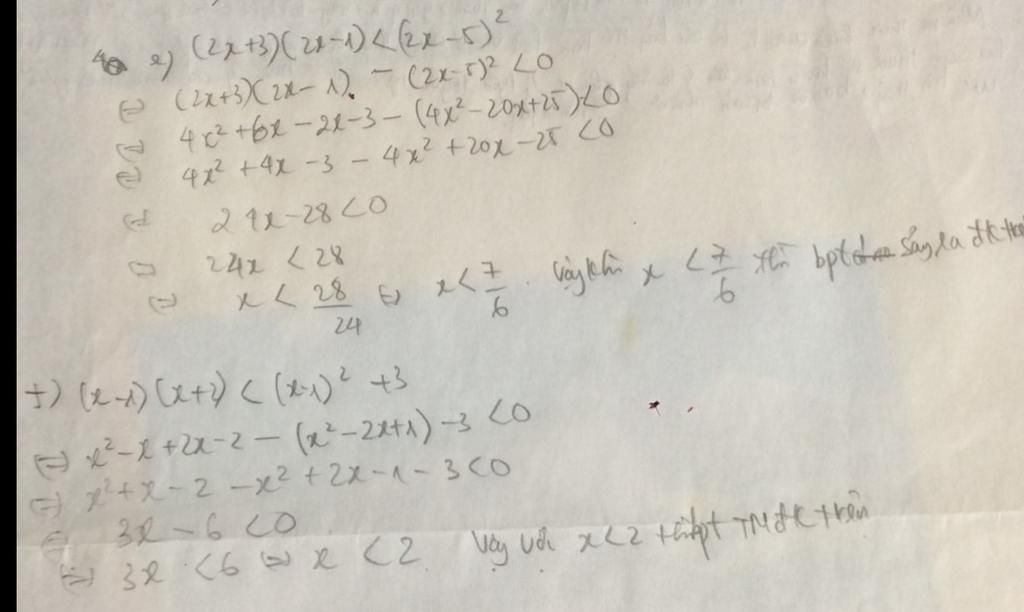 e) (2x+3)(2x-1) < (2x-5)²
⇔ (2x+3)(2x-1) - (2x-5)² < 0
⇔ 4x² + 6x - 2x - 3 - (4x² - 20x + 25) < 0
⇔ 4x² + 4x - 3 - 4x² + 20x - 25 < 0
⇔ 24x - 28 < 0
⇔ 24x < 28
⇔ x < 28/24 ⇔ x < 7/6. Vậy khi x < 7/6 thì bpt xảy ra đk
f) (x-1)(x+2) < (x-1)² + 3
⇔ x² - x + 2x - 2 - (x² - 2x + 1) - 3 < 0
⇔ x² + x - 2 - x² + 2x - 1 - 3 < 0
⇔ 3x - 6 < 0
⇔ 3x < 6 ⇔ x < 2. Vậy với x < 2 bpt TM đk trên